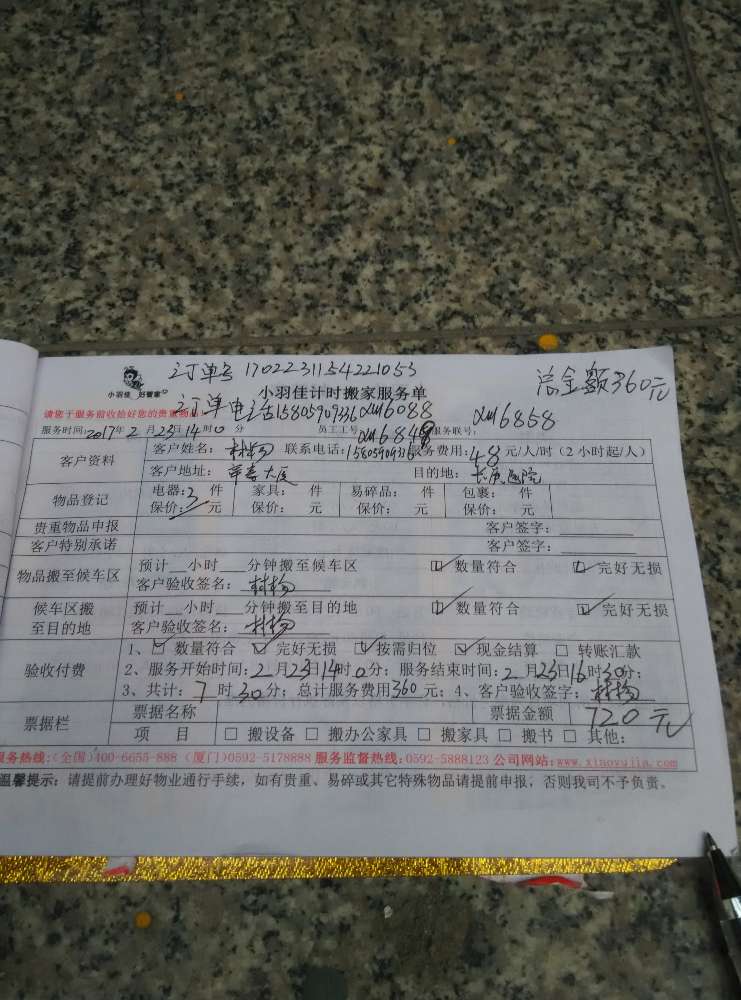 订单号 1702231154221053
总金额360元
小羽佳 好管家
小羽佳计时搬家服务单
请您于服务前收拾好您的贵重物品
订单电话15805909336 XM6088
服务时间:2017年2月23日14时0分 员工工号: XM6848 服务联号: XM6858
客户资料 客户姓名: 联系电话:15805909336 服务费用:48元/人/时(2小时起/人)
客户地址: 大厦 目的地: 长庚医院
物品登记 电器:3件 家具: 件 易碎品: 件 包裹: 件
保价: 元 保价: 元 保价: 元 保价: 元
贵重物品申报 客户签字:
客户特别承诺 客户签字:
物品搬至候车区 预计__小时___分钟搬至候车区 ☑ 数量符合 ☑ 完好无损
客户验收签名:
候车区搬至目的地 预计__小时___分钟搬至目的地 ☑ 数量符合 ☑ 完好无损
客户验收签名:
验收付费 1、☑ 数量符合 ☑ 完好无损 ☑ 按需归位 ☑ 现金结算 □ 转账汇款
2、服务开始时间:2月23日14时0分; 服务结束时间:2月23日16时30分;
3、共计:7时30分; 总计服务费用360元; 4、客户验收签字:
票据栏 票据名称 票据金额 720元
项 目 □ 搬设备 □ 搬办公家具 □ 搬家具 □ 搬书 □ 其他:
服务热线:(全国)400-6655-888 (厦门)0592-5178888 服务监督热线:0592-5888123 公司网站:www.xiaoyujia.com
温馨提示: 请提前办理好物业通行手续, 如有贵重、易碎或其它特殊物品请提前申报, 否则我司不予负责。